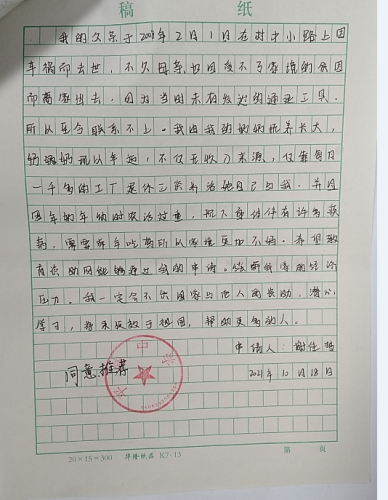 稿 纸
我的父亲于2008年2月1日在对中小路上因
车祸而去世，不久母亲也因受不了家境的贫困
而离家出去，因为当时未有发达的通迅工具。
所以至今联系不上。我由我的奶奶抚养长大，
奶奶现以年迈，不仅无收入来源，仅靠每月
一千多的工厂退休工资养活她自己与我。并且
因年的年纪时
劳，需常年吃药所以家境更加不好。希望教
育在助网能够通过我的申请。缓解我家的经济
压力。我一定会不负国家与他人的资助，潜心
学习，将来反报于祖国，帮助更多的人。
申请人：谢佳
2021年10月18日
同意推荐
中学
20×15=300 华隆纸品 K7-13
第 页